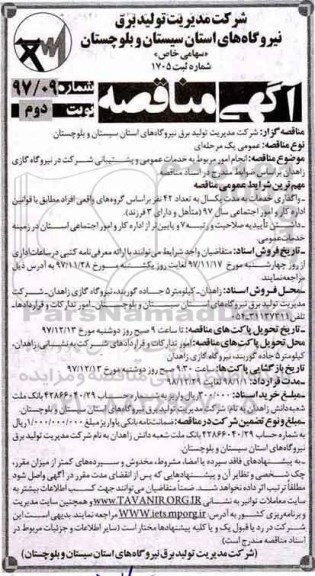 شرکت مدیریت تولید برق
نیروگاه‌های استان سیستان و بلوچستان
«سهامی خاص»
شماره ثبت ۱۷۰۵
آگهی مناقصه
شماره ۹۷/۰۹
نوبت دوم
مناقصه گزار: شرکت مدیریت تولید برق نیروگاه‌های استان سیستان و بلوچستان
نوع مناقصه: عمومی یک مرحله‌ای
موضوع مناقصه: انجام امور مربوط به خدمات عمومی و پشتیبانی شرکت در نیروگاه گازی
زاهدان براساس ضوابط مندرج در اسناد مناقصه
مهم‌ترین شرایط عمومی مناقصه
ـ واگذاری خدمات به مدت یکسال به تعداد ۴۲ نفر براساس گروه‌های واقعی افراد مطابق با قوانین
اداره کار و امور اجتماعی سال ۹۷ (متأهل و دارای ۳ فرزند).
ـ داشتن تأییدیه صلاحیت و رتبه ۷ و پایین‌تر از اداره کار و امور اجتماعی استان در زمینه
خدمات عمومی
ـ تاریخ فروش اسناد: متقاضیان واجد شرایط می‌توانند با ارائه معرفی‌نامه کتبی در ساعات اداری
از روز چهارشنبه مورخ ۹۷/۱۱/۱۷ لغایت روز یکشنبه مورخ ۹۷/۱۱/۲۸ به آدرس ذیل
مراجعه نمایند.
ـ محل فروش اسناد: زاهدان ـ کیلومتر ۵ جاده گوربند، نیروگاه گازی زاهدان ـ شرکت
مدیریت تولید برق نیروگاه‌های استان سیستان و بلوچستان ـ امور تدارکات و قراردادها ـ
تلفن: ۰۵۴۳۱۱۳۷۳۳۱
ـ تاریخ تحویل پاکت‌های مناقصه: تا ساعت ۹ صبح روز دوشنبه مورخ ۹۷/۱۲/۱۳
محل تحویل پاکت‌های مناقصه: امور تدارکات و قراردادهای شرکت به نشانی زاهدان،
کیلومتر ۵ جاده گوربند، نیروگاه گازی زاهدان
تاریخ بازگشایی پاکت‌ها: ساعت ۹/۳۰ صبح روز دوشنبه مورخ ۹۷/۱۲/۱۳
ـ مدت قرارداد: از ۹۸/۱/۱ لغایت ۹۸/۱۲/۲۹
ـ مبلغ خرید اسناد: ۳۰۰/۰۰۰ ریال واریز به شماره حساب ۴۲۸۶۶۰۴۰۲۹ بانک ملت
شعبه دانش زاهدان به نام: شرکت مدیریت تولید برق نیروگاه‌های استان سیستان و بلوچستان.
ـ مبلغ و نوع تضمین شرکت در مناقصه: ضمانت‌نامه بانکی یا واریز مبلغ ۱/۰۰۰/۰۰۰/۰۰۰ ریال
به شماره حساب ۴۲۸۶۶۰۴۰۲۹ بانک ملت شعبه دانش زاهدان به نام شرکت مدیریت تولید برق
نیروگاه‌های استان سیستان و بلوچستان.
ـ به پیشنهادهای فاقد سپرده یا امضا، مشروط، مخدوش و سپرده‌های کمتر از میزان مقرر،
چک شخصی و نظایر آن و پیشنهادهایی که پس از انقضای مدت مقرر در آگهی واصل شود
مطلقاً ترتیب اثر داده نخواهد شد. ضمناً متقاضیان می‌توانند جهت کسب اطلاعات بیشتر به
سایت معاملات توانیر به نشانی WWW.TAVANIR.ORG.IR و همچنین سایت مدیریت
و برنامه‌ریزی کشور به آدرس: WWW.iets.mporg.ir مراجعه نمایند. بدیهی است این
شرکت در رد یا قبول یک و یا کلیه پیشنهادها مختار است (سایر اطلاعات و جزئیات مربوط در
اسناد مناقصه مندرج است)
(شرکت مدیریت تولید برق نیروگاه‌های استان سیستان و بلوچستان)